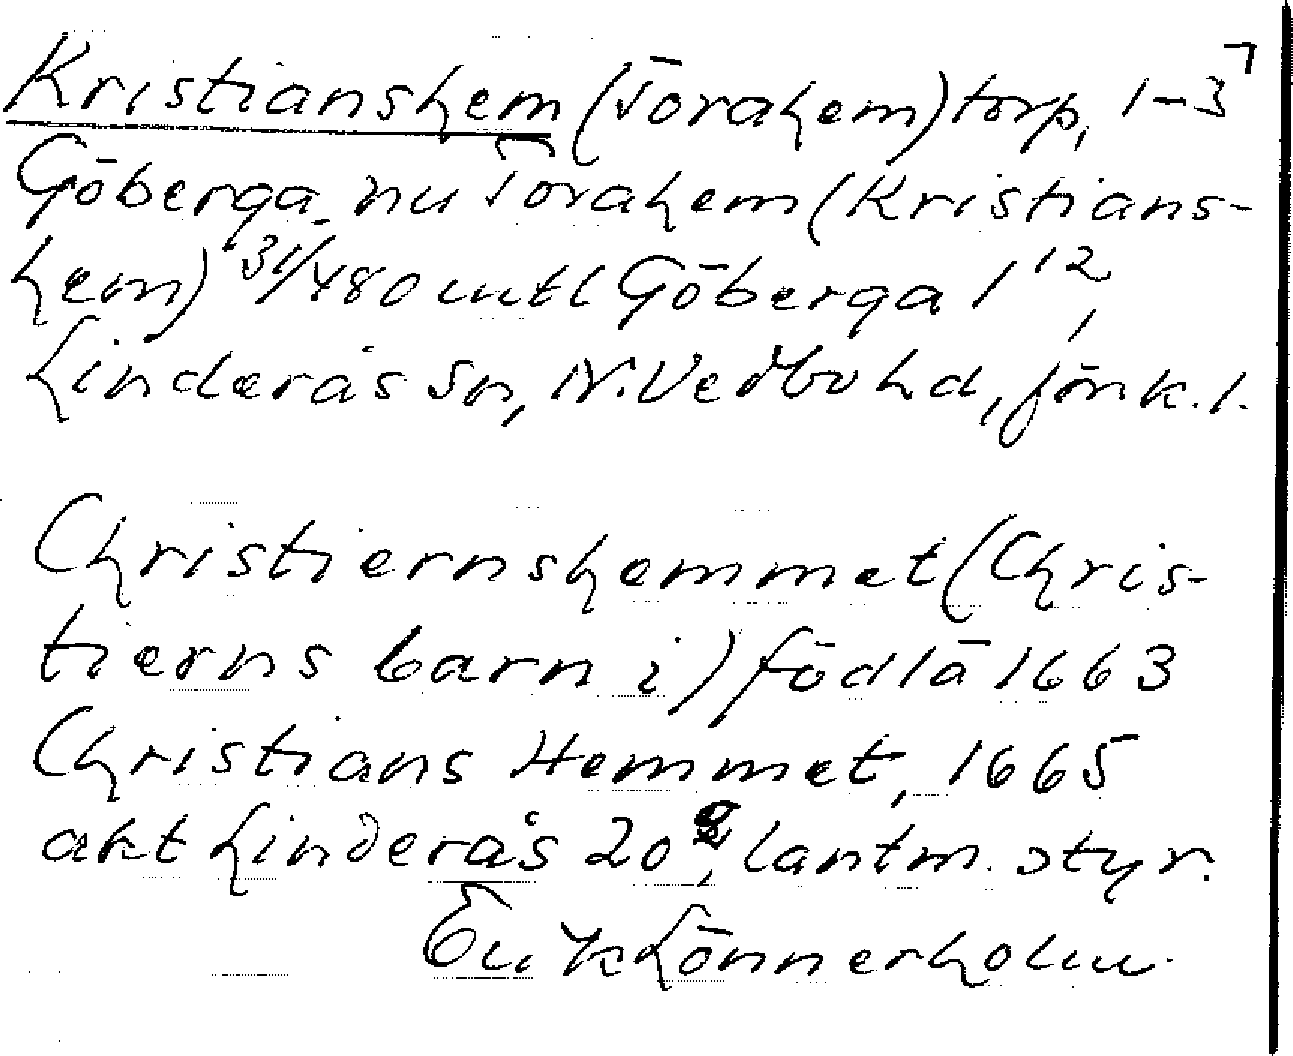 Kristianshem (Torahem) torp, 1-3⁷
Göberga, nu Torahem (Kristians-
hem) 31/480 mtl Göberga 1¹²,
Linderås sn, N. Vedbo hd, Jönk. l.
Christiernshemmet (Chris-
tierns barn i) födlä 1663
Christians Hemmet, 1665
akt Linderås 20, lantm. styr.
Lönnerholm